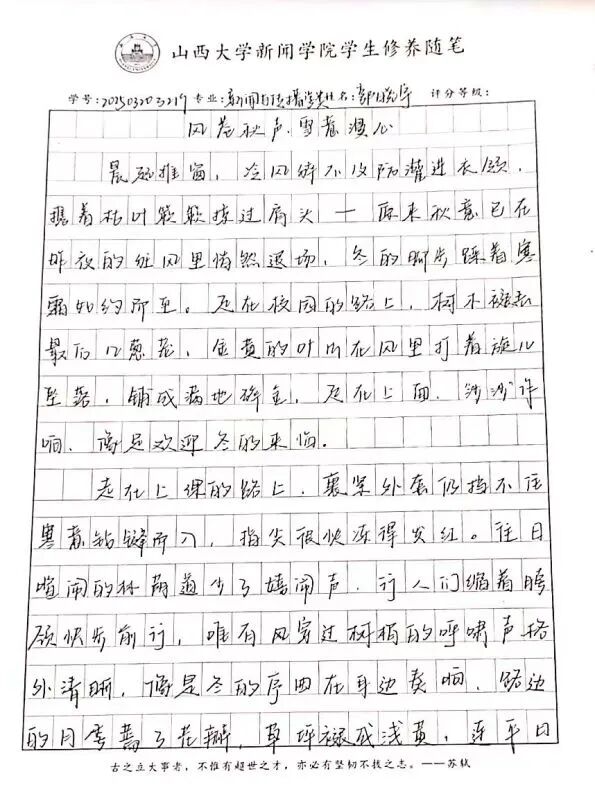 山西大学新闻学院学生修养随笔
学号：202503203219 专业：新闻与传播学类 姓名： 评分等级：
风卷秋声，雪意漫心
晨起推窗，冷风猝不及防灌进衣领，
携着枯叶簌簌掠过肩头——原来秋意已在
昨夜的狂风里悄然退场，冬的脚步踩着寒
霜如约而至。走在校园的路上，树木褪去
最后几葱茏，金黄的叶片在风里打着旋儿
坠落，铺成满地碎金，走在上面，沙沙作
响，像是欢迎冬的来临。
走在上课的路上，裹紧外套仍挡不住
寒意钻缝而入，指尖很快冻得发红。往日
喧闹的林荫道少了嬉闹声，行人们缩着脖
颈快步前行，唯有风穿过树梢的呼啸声格
外清晰，像是冬的序曲在耳边奏响。路边
的月季蔫了花瓣，草坪褪成浅黄，连平日
古之立大事者，不惟有超世之才，亦必有坚韧不拔之志。——苏轼